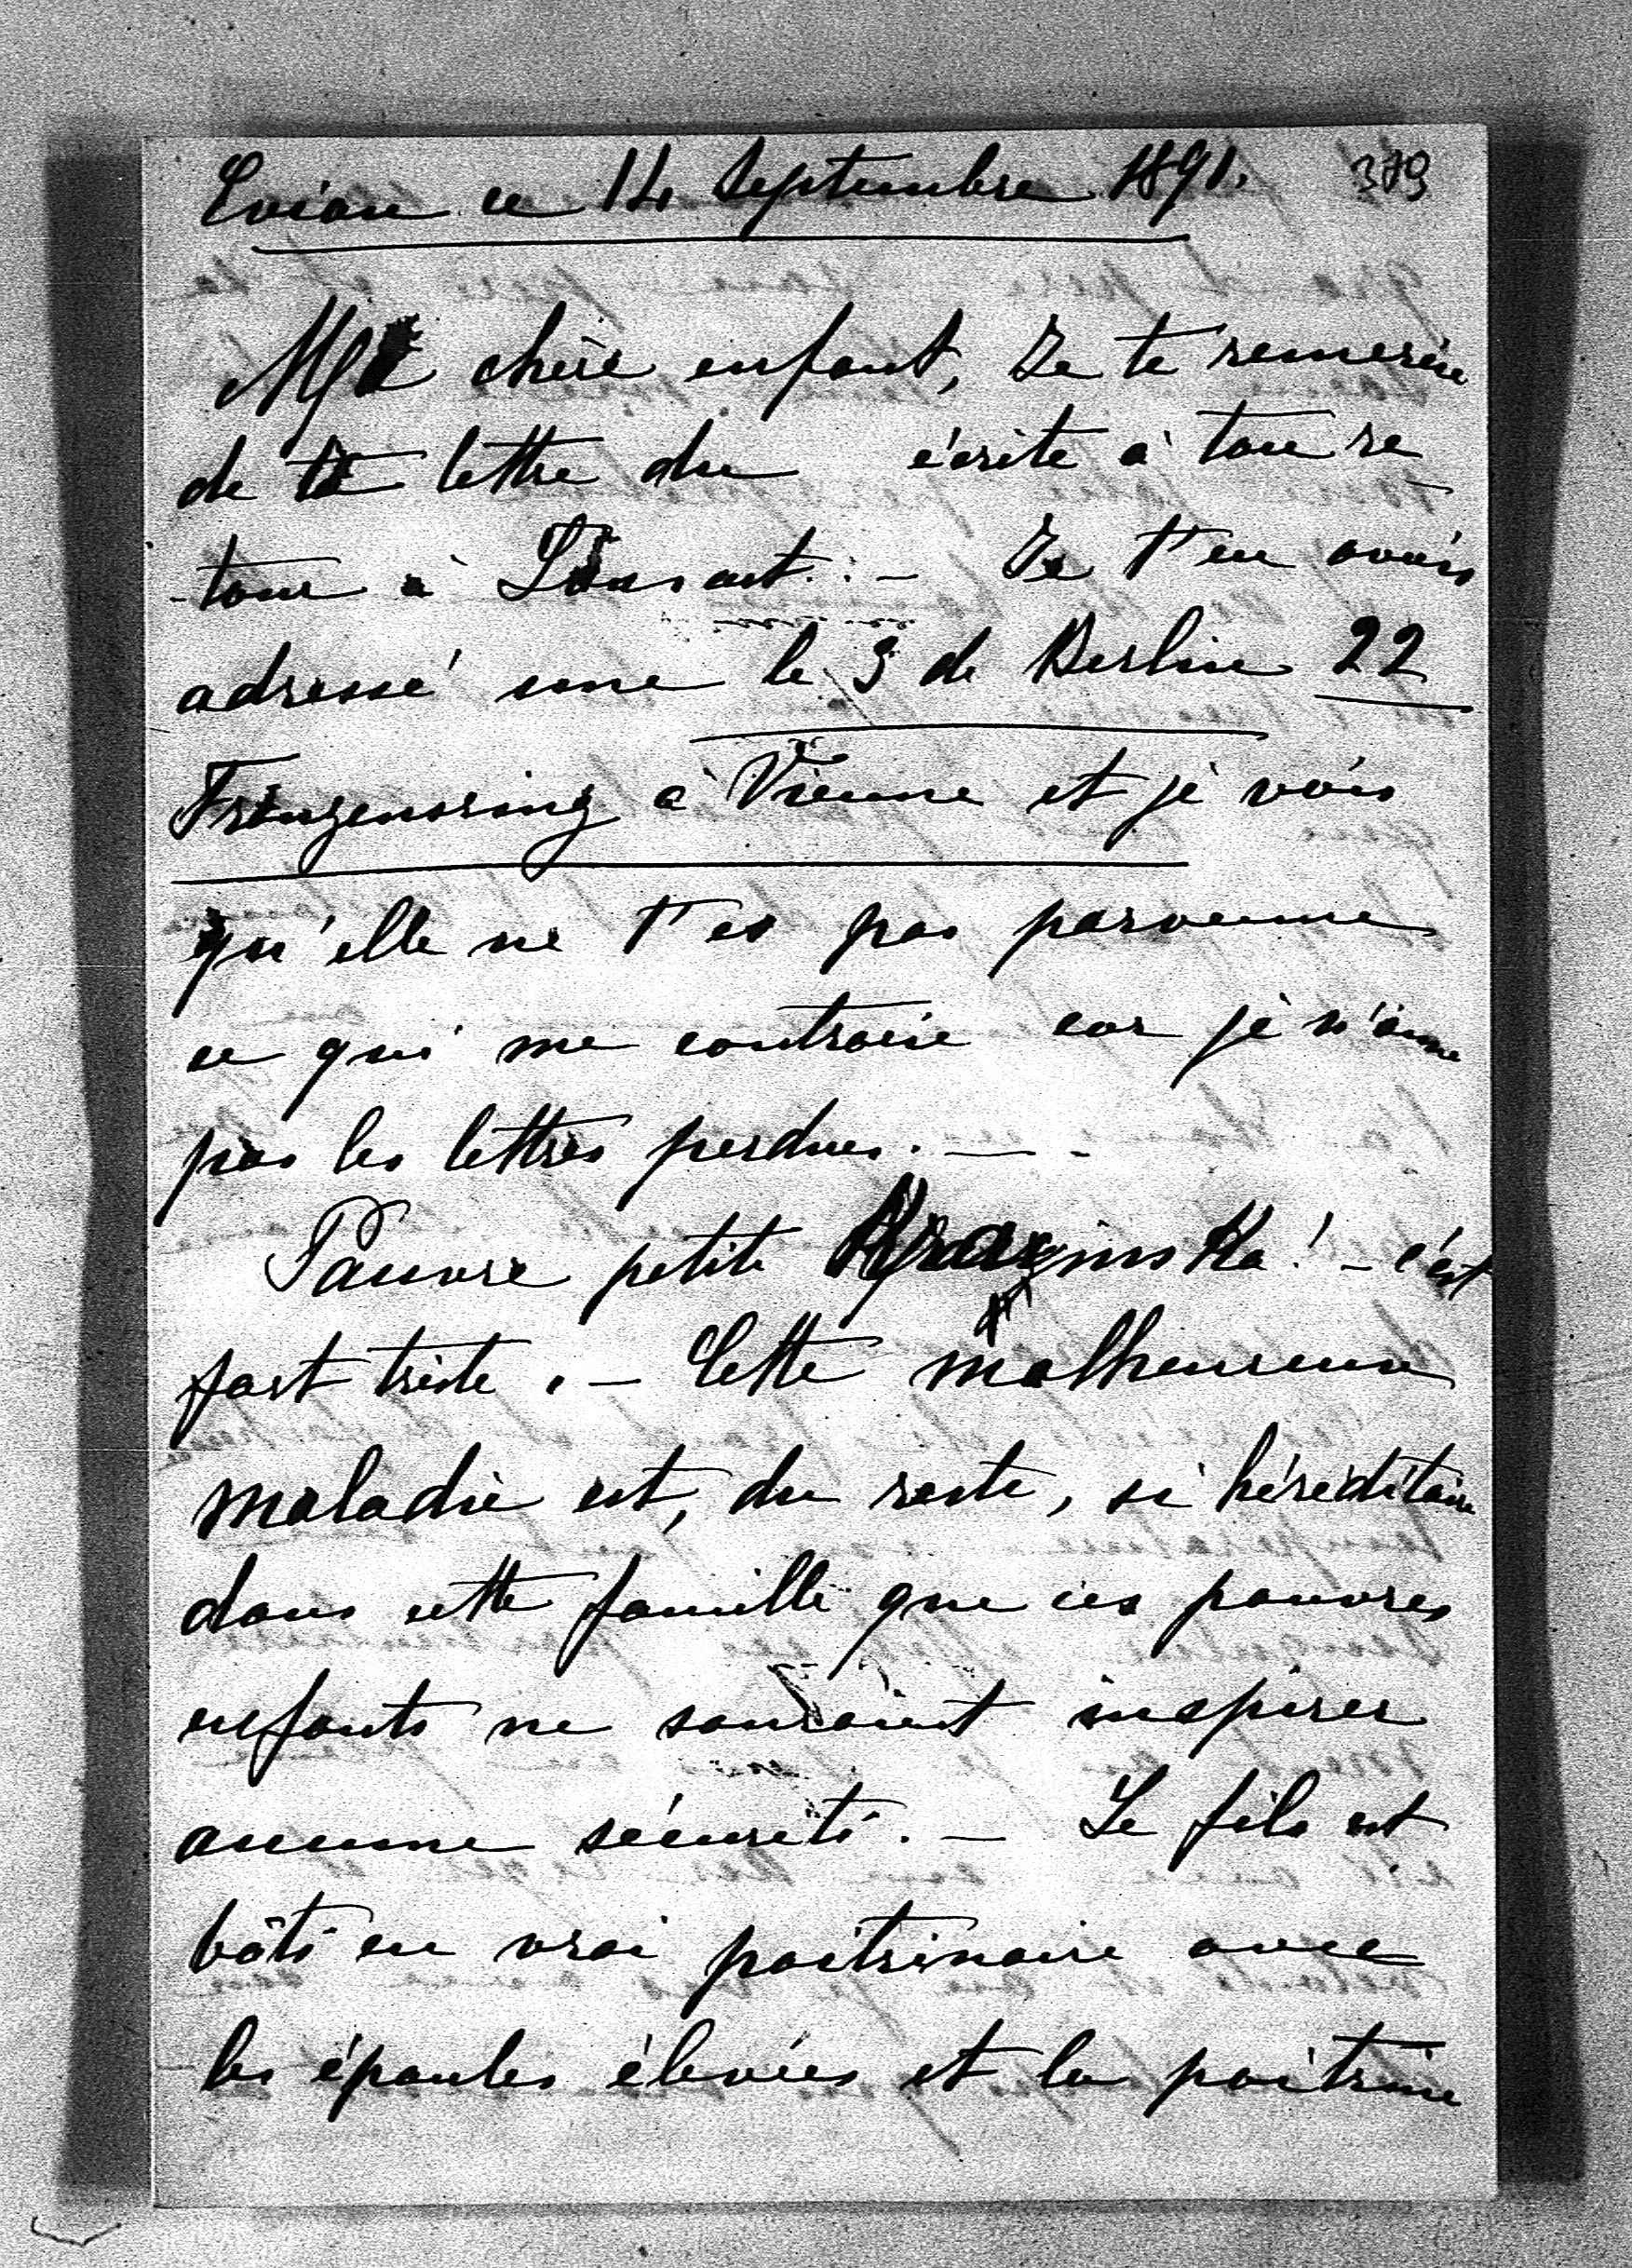 Evian ce 14 Septembre 1891. 379
Ma chère enfant, Je te remercie
de ta lettre du écrite à ton re
-tour à Łańcut. — Je t'en avais
adressé une le 3 de Berlin 22
Franzensring à Vienne et je vois
qu'elle ne t'es pas parvenue
ce qui me contrarie car je n'aime
pas les lettres perdues. —
Pauvre petite Krasinska! — c'est
fort triste. — Cette malheureuse
maladie est, du reste, si héréditaire
dans cette famille que ces pauvres
enfants ne sauraient inspirer
aucune sécurité. — Le fils est
bâti en vrai poitrinaire avec
les épaules élevées et la poitrine